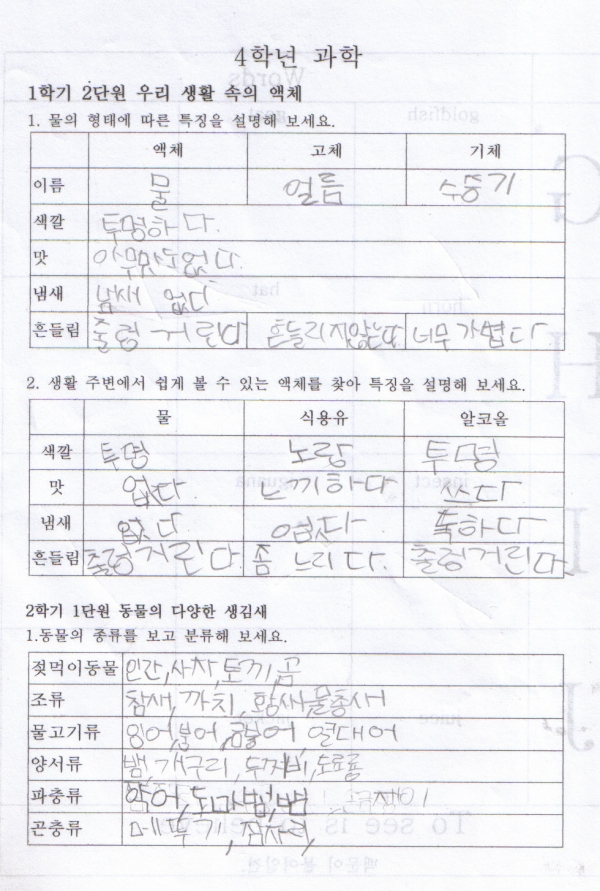 4학년 과학
1학기 2단원 우리 생활 속의 액체
1. 물의 형태에 따른 특징을 설명해 보세요.
액체 고체 기체
이름 물 얼름 수증기
색깔 투명하다.
맛 아무맛도없다.
냄새 냄새 없다
흔들림 출렁 거린다 흔들리지않는다 너무 가볍다
2. 생활 주변에서 쉽게 볼 수 있는 액체를 찾아 특징을 설명해 보세요.
물 식용유 알코올
색깔 투명 노랑 투명
맛 없다. 느끼하다 쓰다
냄새 없다 없다 독하다
흔들림 출렁거린다. 좀 느리다. 출렁거린다
2학기 1단원 동물의 다양한 생김새
1.동물의 종류를 보고 분류해 보세요.
젖먹이동물 인간,사자,토끼,곰
조류 참새,까치, 황새,물총새
물고기류 잉어,붕어, 금붕어, 열대어
양서류 뱀,개구리, 두꺼비,도료룡
파충류 악어, 도마뱀,뱀
곤충류 메뚜기, 잠자리,
goldfish
Words
hat
horn
insect
iguana
juice
To see is
백문이 불여일견.
G
H
I
J